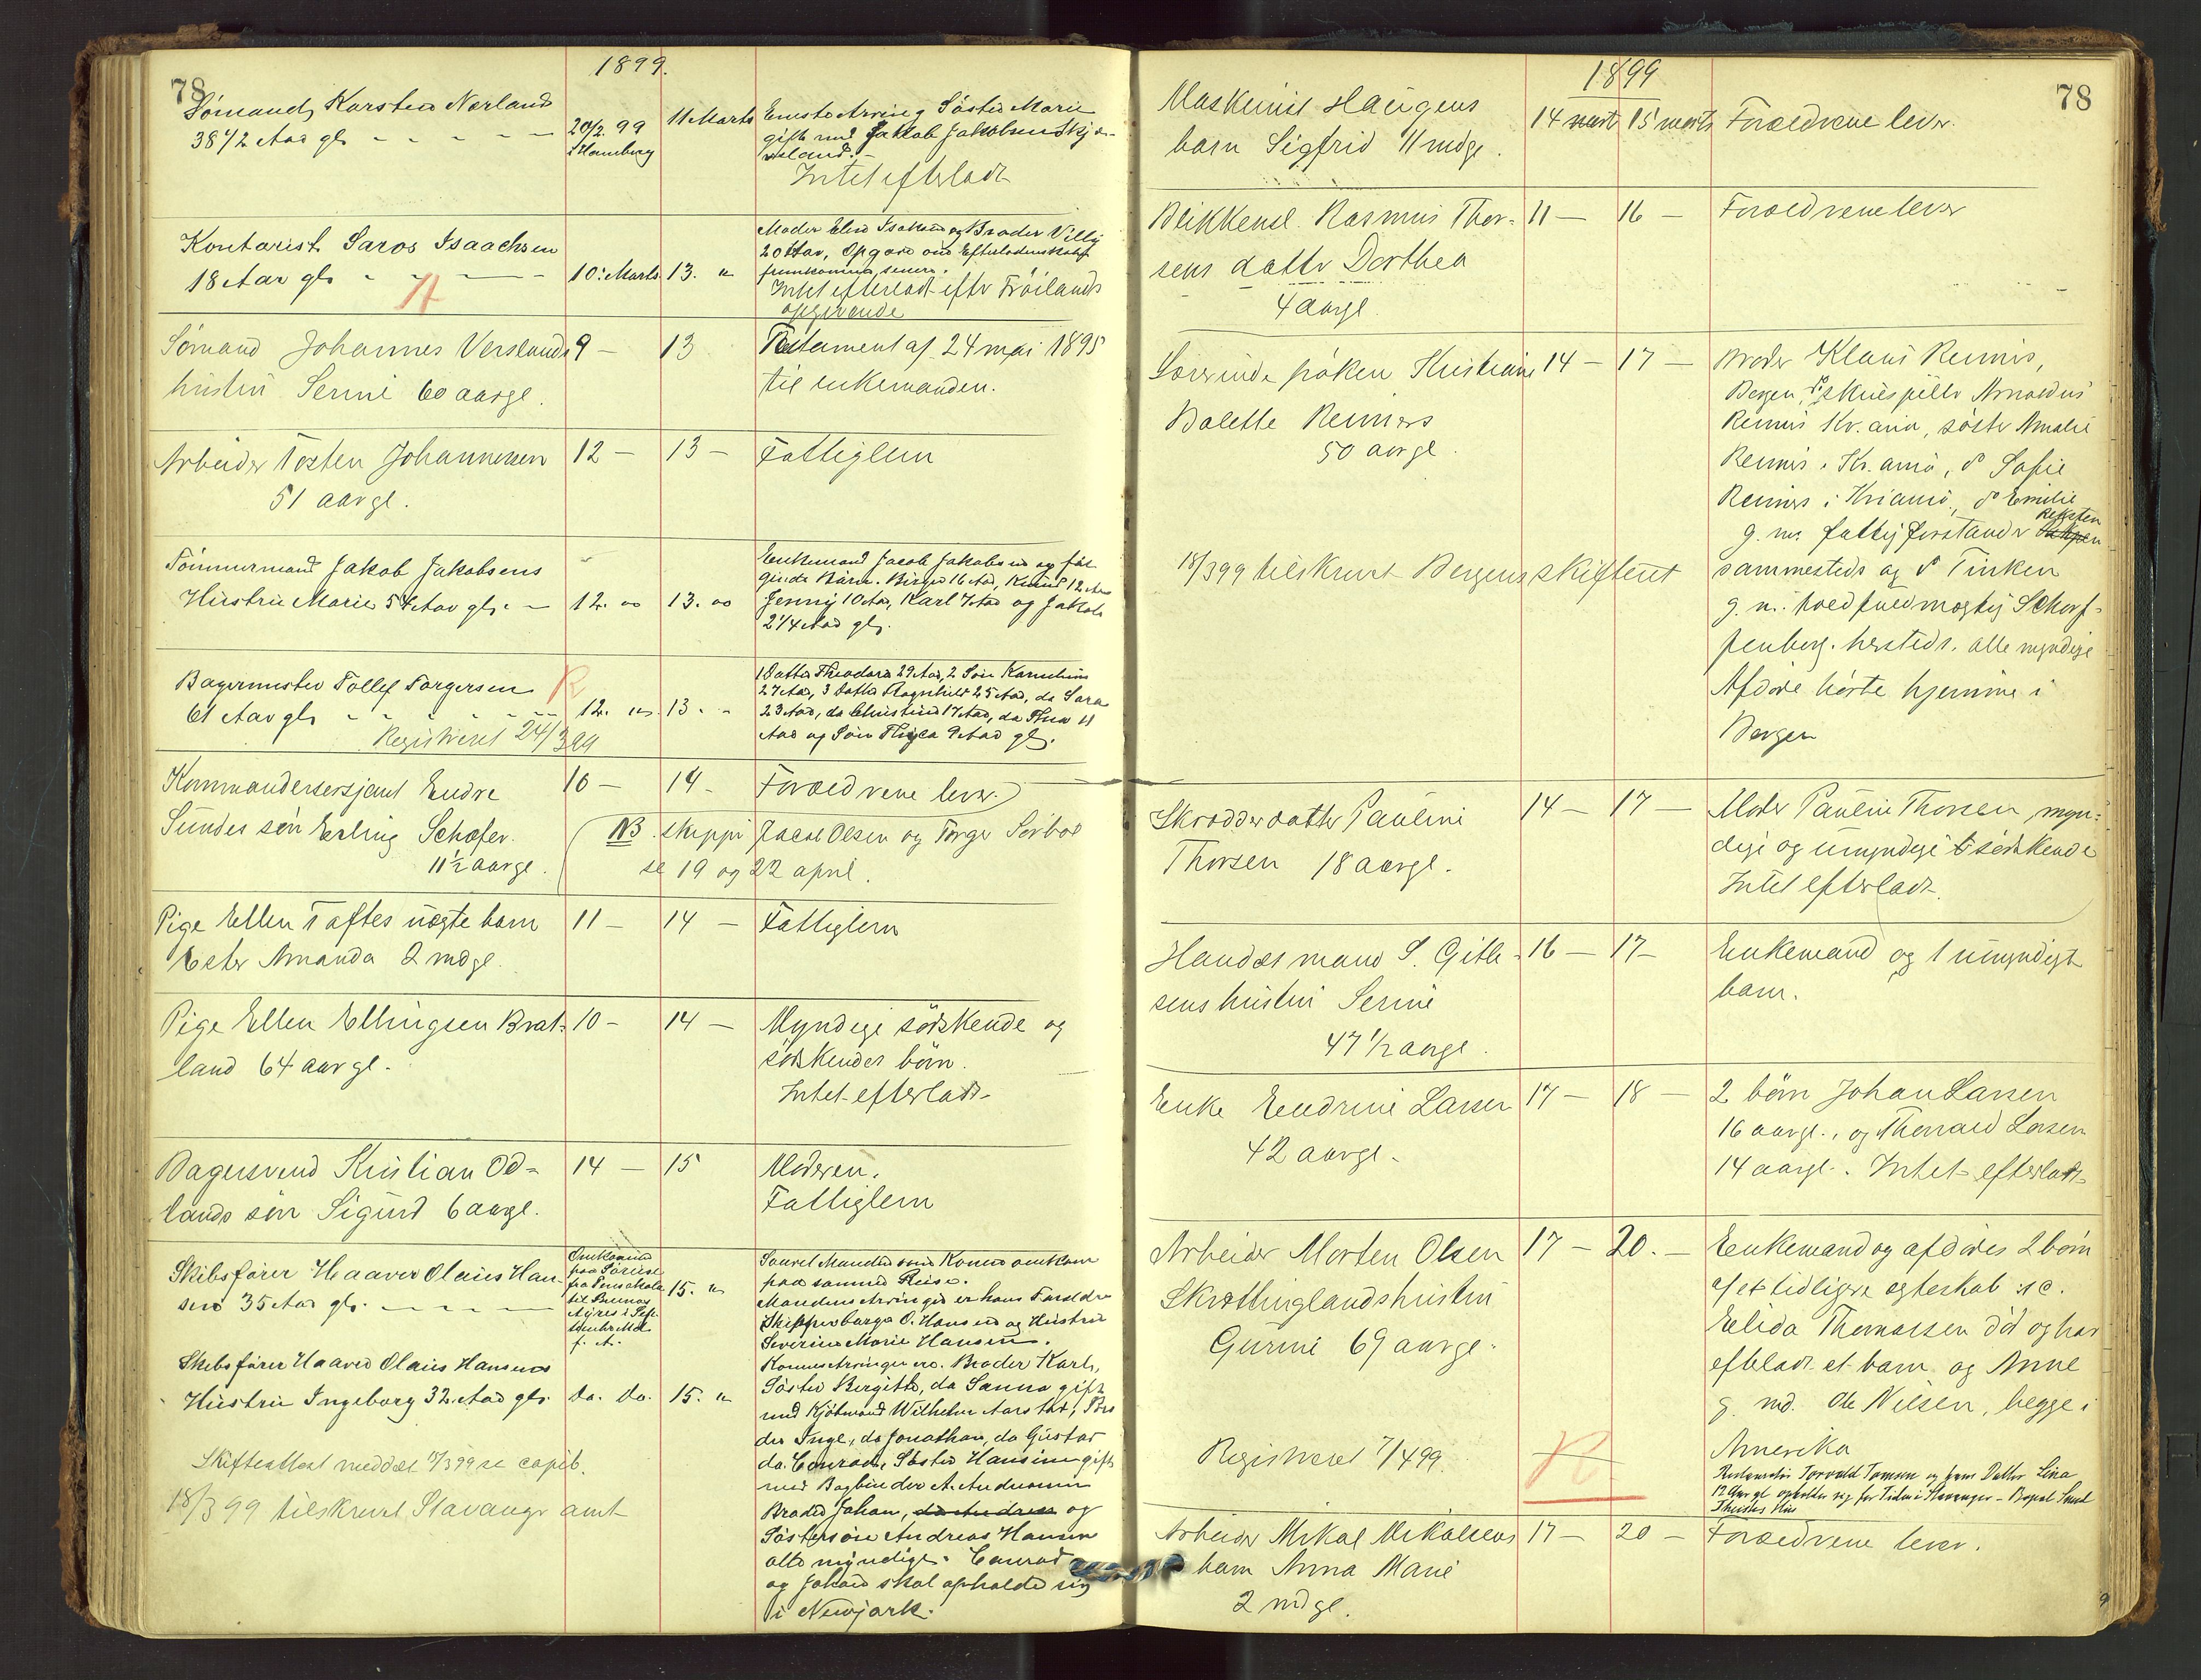 78
1899.
Sømand Karsten Nærland
38 1/2 Aar gl.
20/2. 99
i Hamburg
11 Marts
Eneste Arving Søster Marie
gift med Jakob Jakobsen
Intet efterladt
Kontorist Isaachsen
18 Aar gl.
10. Marts
13. "
Moder Elen og Broder Villy
20 Aar, Opgave om Efterladenskab
fremkommer senere.
Intet efterladt efter Fröilands
opgivende
Sømand Johannes Verslands
hustru Serine 60 aargl.
9 –
13
Testament af 24 mai 1895
til enkemanden.
Arbeider Tosten Johannesen
51 aargl.
12 –
13 –
Fattiglem
Tömmermand Jakob Jakobsens
Hustru Marie 54 Aar gl.
12. "
13. "
Enkemand Jacob Jakobsen og føl
gende Børn. Birger 16 Aar, 12 Aar
Jenny 10 Aar, Karl 7 Aar og Jakob
2 1/4 Aar gl.
Bagermester Tollef Torgersen R
61 Aar gl.
12. "
13. "
Registreret 24/3 99
1 Datter Theodora 29 Aar, 2 Søn
27 Aar, 3 Datter Ragnhild 25 Aar, do Sara
23 Aar, do Christine 17 Aar, do Thea 11
Aar og Søn 9 Aar gl.
Kommandersersjant Endre
Sundes søn Erling Schøfer.
11 1/2 aargl.
10 –
14 –
Forældrene lever.
NB. skipper Jacob Olsen og Torger Sørbøe
se 19 og 22 april.
Pige Ellen Taftes uægte barn
Ester Amanda 2 mdgl.
11 –
14 –
Fattiglem
Pige Ellen Ellingsen Brat-
land 64 aargl.
10 –
14 –
Myndige søskende og
søskendes børn.
Intet efterladt
Bagersvend Kristian Od-
lands søn Sigurd 6 aargl.
14 –
15
Moderen.
Fattiglem
Skibsfører Haaver Olaus Han-
sen 35 Aar gl.
Omkommet
paa Søreise
fra Pensakola
til Buenos
Ayres i
f. A.
15. "
Saavel Manden som Konen omkom
paa samme Reise.
Mandens Arvinger er hans Forældre
O. Hansen og Hustru
Severine Marie Hansen.
Skibsfører Haaver Olaus Hansens
Hustru Ingeborg 32 Aar gl.
do. do.
15. "
Konens Arvinger ere. Broder Karl,
Søster Bergitte, do Sanna gift
med Kjøbmand Wilhelm Aarstad, Bro
der Inge, do Jonathan, do Gustav
do. Conrad, Søster Hansine gift
med Bogbinder A. Andersen
Broder Johan, do Andreas og
Søstersøn Andreas Hansen
alle myndige. Conrad
og Johan skal opholde sig
i Newjork.
Skifteattest meddelt 17/3 99 se copib.
18/3 99 tilskrevet Stavanger amt
78
1899
Maskinist Haugens
barn Sigfrid 11 mdgl.
14 marts
15 marts
Forældrene lever.
Blikkensl. Rasmus Thor-
sens datter Dorthea
4 aargl.
11 –
16 –
Forældrene lever
Lærerinde frøken Kristiane
Bolette Reimers
50 aargl.
14 –
17 –
Broder Klaus Reimers,
Bergen, do skuespiller Arnoldus
Reimers Kr.ania, søster Amalie
Reimers i Kr.ania, do Sofie
Reimers i Kr.ania, do Emilie
g. m. fattigforstander Reksten
sammesteds og do Tinken
g. m. politifuldmægtig Scharf-
fenberg hersteds. alle myndige
Afdøde hørte hjemme i
Bergen
18/3 99 tilskrevet Bergens skifteret
Skrædderdatter Pauline
Thorsen 18 aargl.
14 –
17 –
Moder Pauline Thorsen, myn-
dige og umyndige søskende
Intet efterladt
Handelsmand S. Gitle-
sens hustru Serine
47 1/2 aargl.
16 –
17 –
Enkemand og 1 umyndigt
barn.
Enke Endrine Larsen
42 aargl.
17 –
18 –
2 børn Johan Larsen
16 aargl., og Thorvald Larsen
14 aargl. Intet efterladt
Arbeider Morten Olsen
Skrættinglands hustru
Gurine 69 aargl.
17 –
20. –
Enkemand og afdødes 2 børn
af et tidligere egteskab
Elida Thomassen død og har
efterladt et barn og Anne
g. m. Ole Nilsen, begge i
Amerika
Torvald Tomsen og hans Datter Lina
12 Aar gl. opholder sig for Tiden i Stavanger
Registreret 7/4 99.
R
Arbeider Mikal Mikalsens
barn Anna Marie
2 mdgl.
17 –
20 –
Forældrene lever.